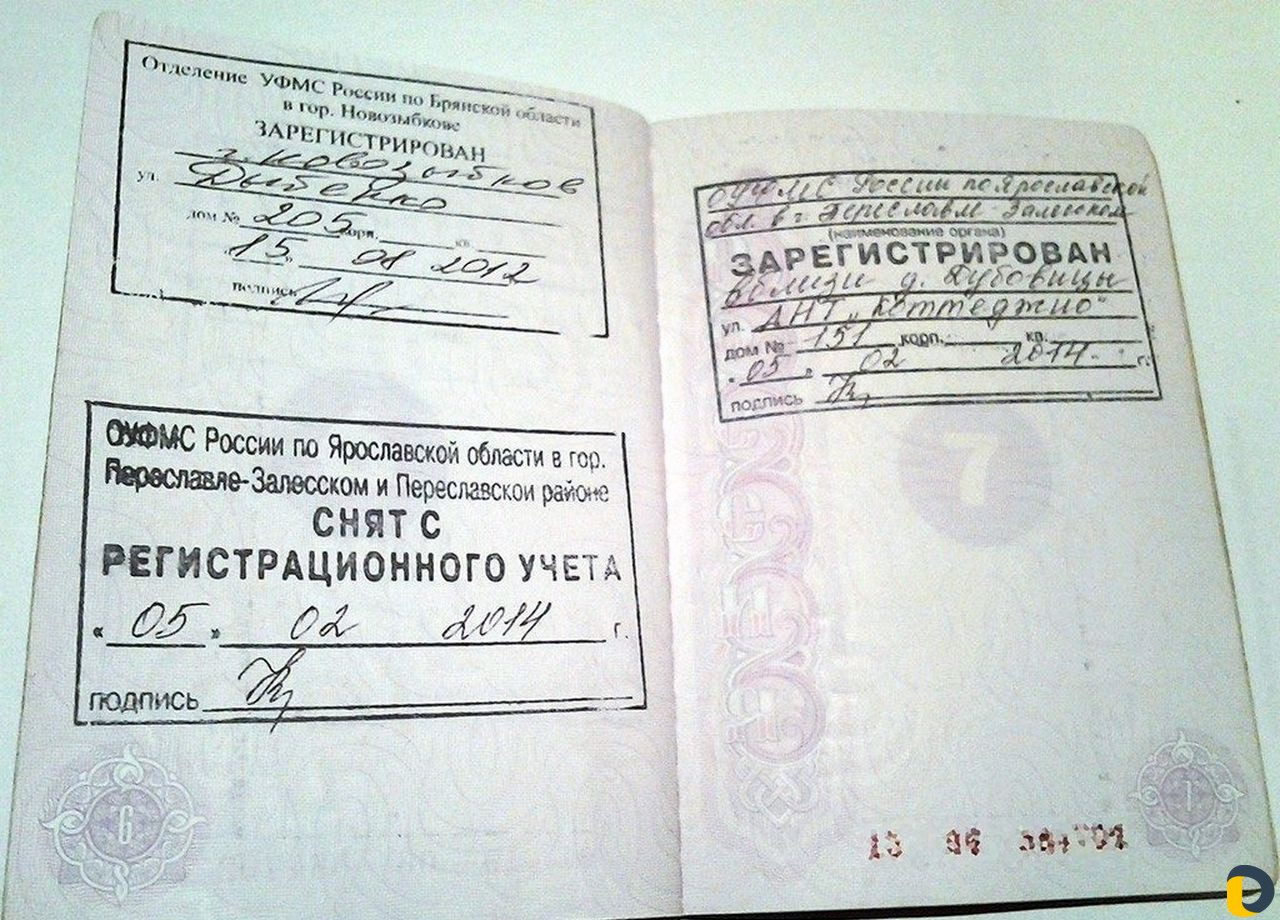 Отделение УФМС России по Брянской области
в гор. Новозыбкове
ЗАРЕГИСТРИРОВАН
г. Новозыбков
ул. Дыбенко
дом № 205 корп. кв.
"15" 08 2012
подпись
ОУФМС России по Ярославской области в гор.
Переславле-Залесском и Переславском районе
СНЯТ С
РЕГИСТРАЦИОННОГО УЧЕТА
«05» 02 2014 г.
подпись
6
ОУФМС России по Ярославской
обл. в г. Переславле-Залесском
(наименование органа)
ЗАРЕГИСТРИРОВАН
вблизи д. Дубовицы
ул. АНТ „Коттеджио"
дом № 151 корп. кв.
"05" 02 2014 г.
подпись
7